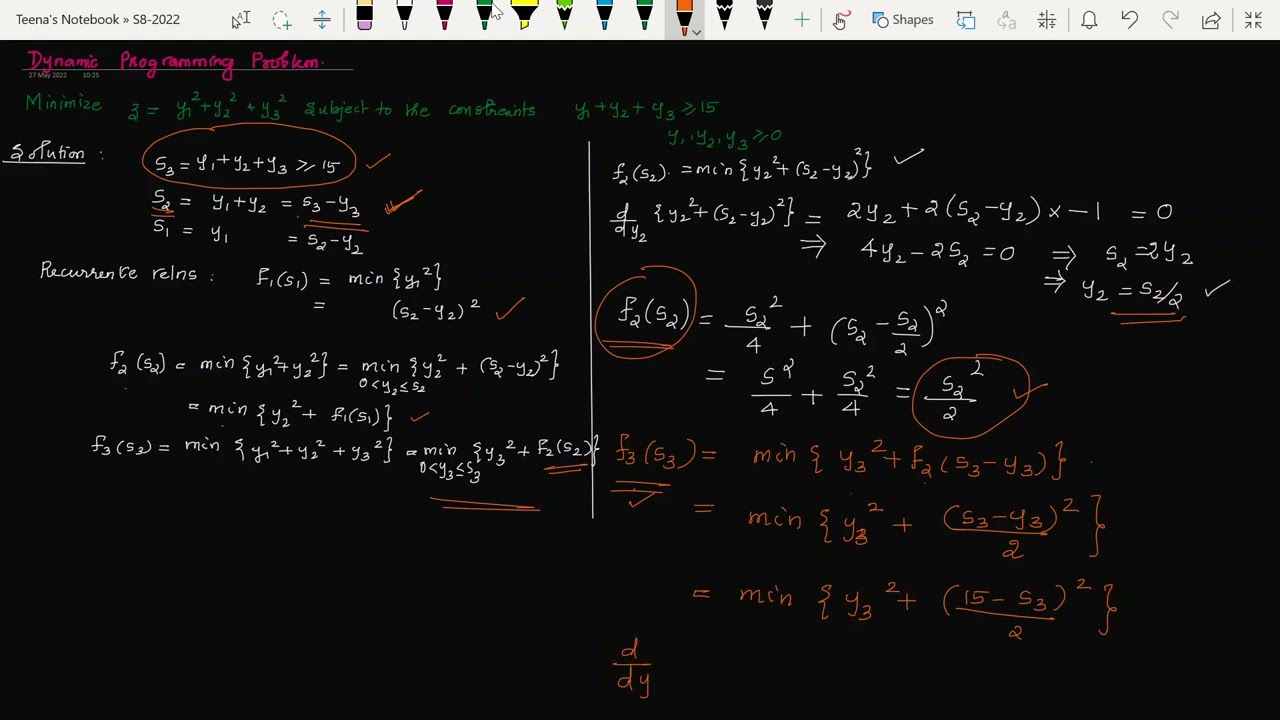 Teena's Notebook » S8-2022
Shapes
Dynamic Programming Problem.
27 May 2022 10:25
Minimize z = y₁² + y₂² + y₃² subject to the constraints y₁ + y₂ + y₃ ≥ 15
y₁, y₂, y₃ ≥ 0
Solution :
S₃ = y₁ + y₂ + y₃ ≥ 15
S₂ = y₁ + y₂ = S₃ - y₃
S₁ = y₁ = S₂ - y₂
Recurrente relns : f₁(S₁) = min {y₁²}
= (S₂ - y₂)²
f₂(S₂) = min {y₁² + y₂²} = min {y₂² + (S₂ - y₂)²}
0 < y₂ ≤ S₂
= min {y₂² + f₁(S₁)}
f₃(S₃) = min {y₁² + y₂² + y₃²} = min {y₃² + f₂(S₂)}
0 < y₃ ≤ S₃
f₂(S₂). = min {y₂² + (S₂ - y₂)²}
d/dy₂ {y₂² + (S₂ - y₂)²} = 2y₂ + 2(S₂ - y₂) × -1 = 0
⇒ 4y₂ - 2S₂ = 0 ⇒ S₂ = 2y₂
⇒ y₂ = S₂/2
f₂(S₂) = S₂²/4 + (S₂ - S₂/2)²
= S²/4 + S₂²/4 = S₂²/2
f₃(S₃) = min { y₃² + f₂(S₃ - y₃)}
= min { y₃² + (S₃ - y₃)²/2 }
= min { y₃² + (15 - S₃)²/2 }
d/dy